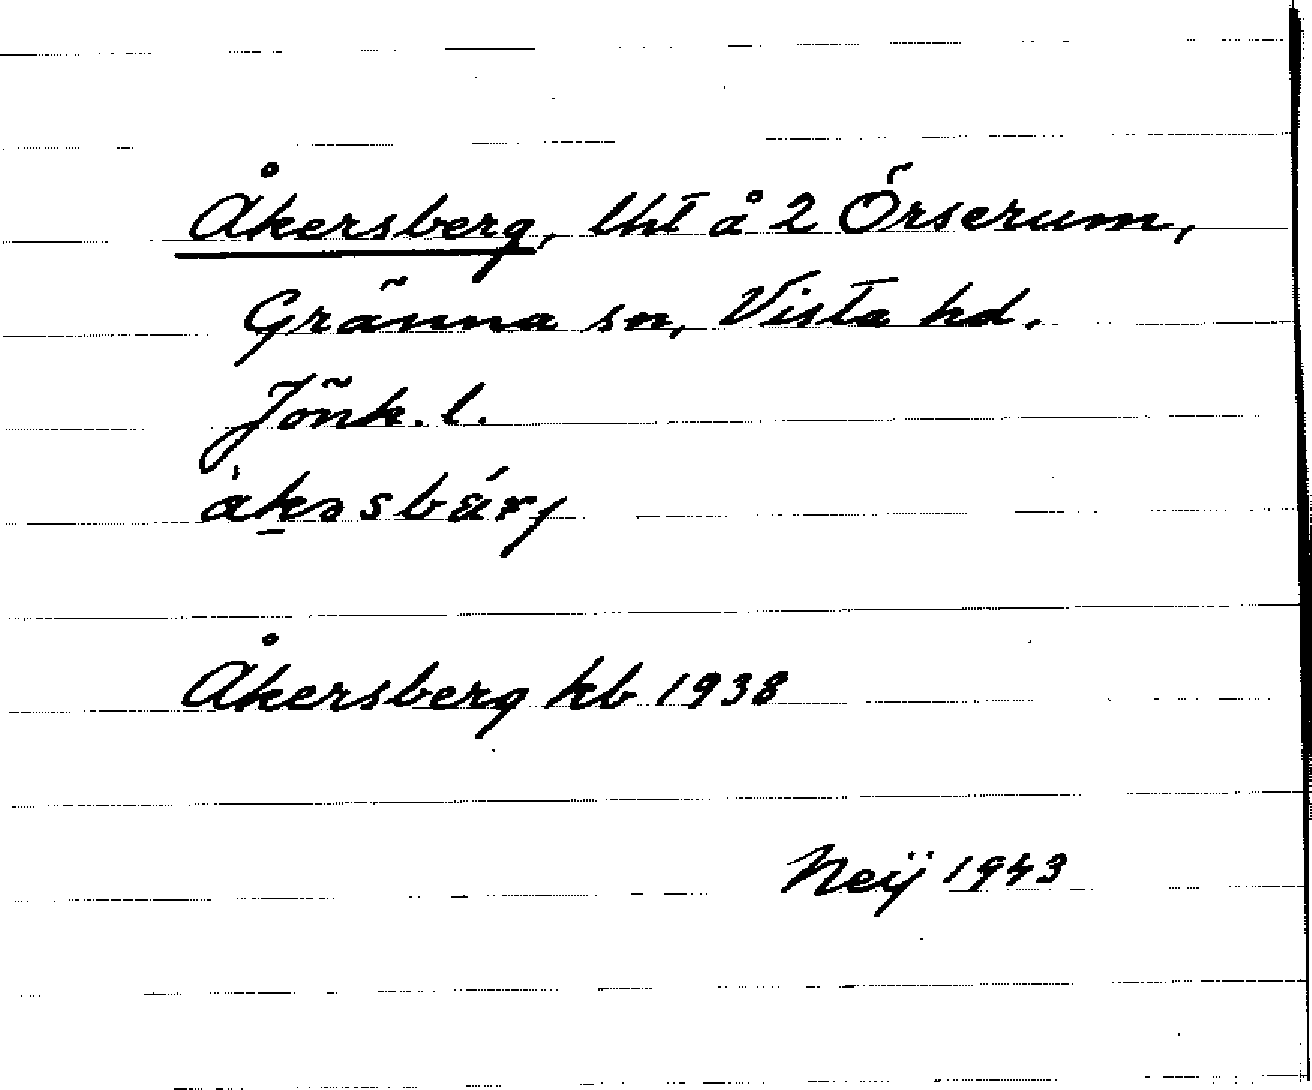 Åkersberg, lht å 2 Örserum,
Gränna sn, Vista hd.
Jönk. l.
Åkersberg kb 1938
Neij 1943